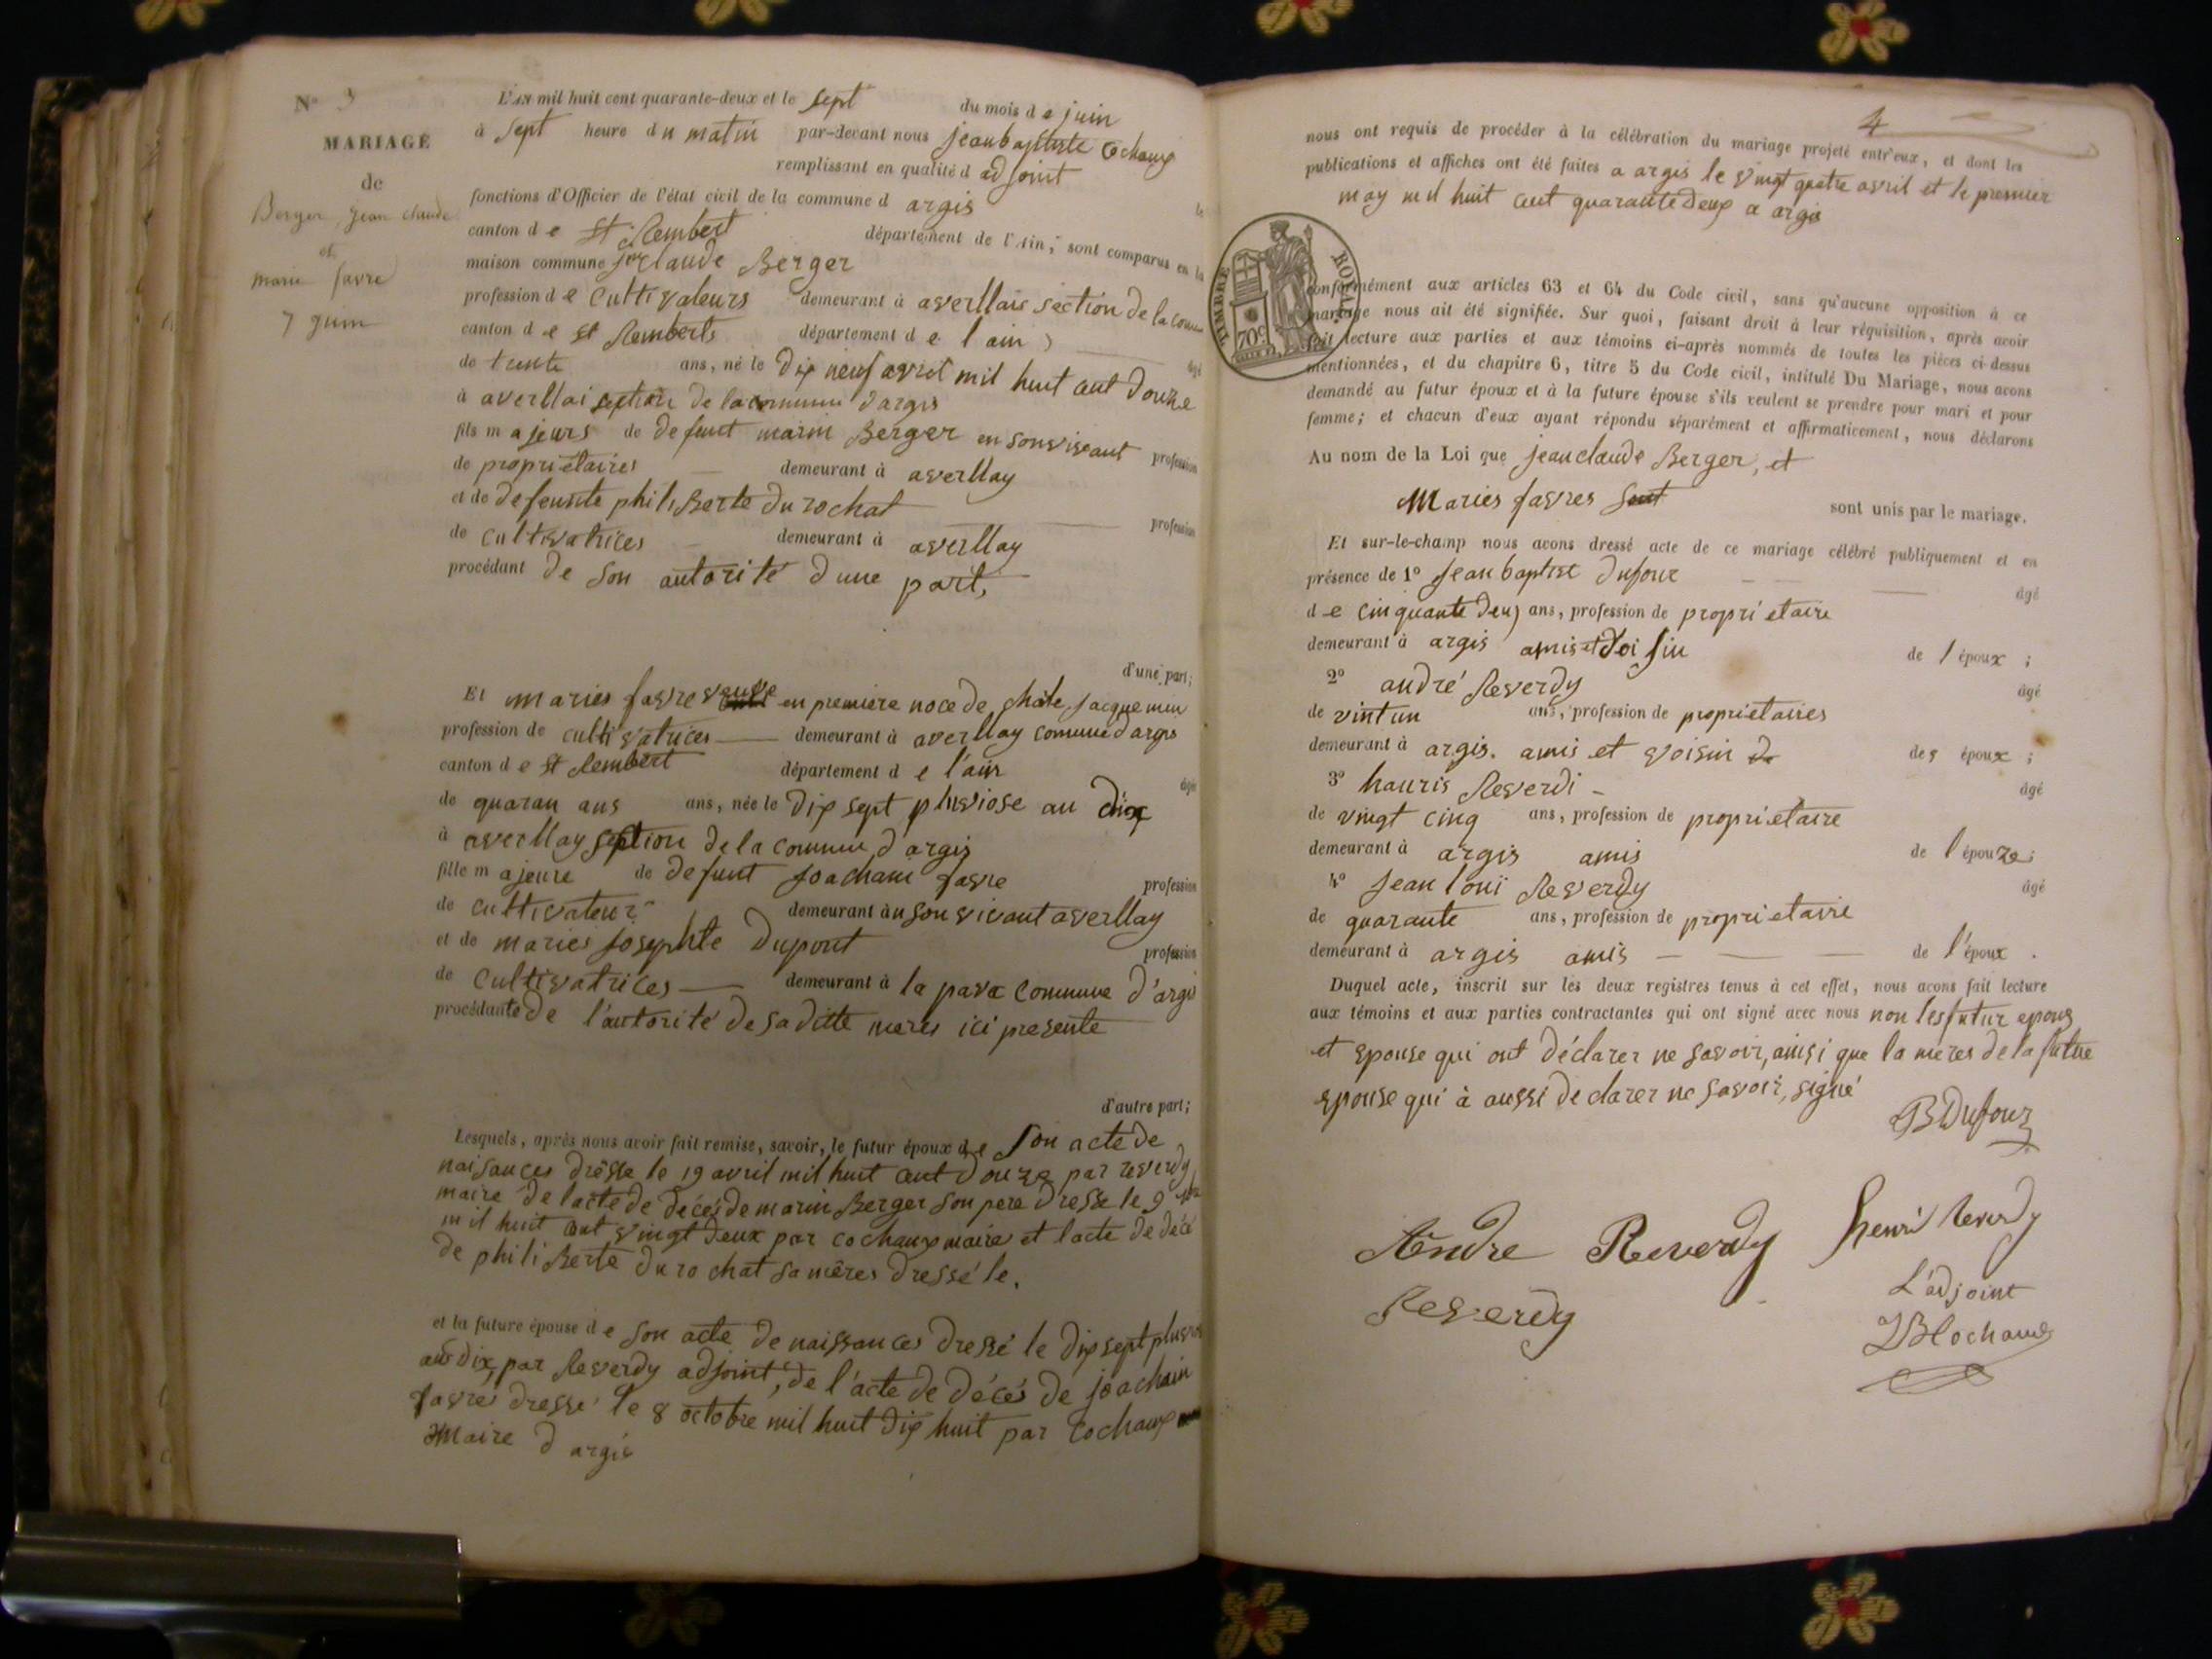 N° 3
MARIAGE
de
Berger, Jean claude
et
marie favre
7 juin
L'an mil huit cent quarante-deux et le sept du mois de juin
à sept heure du matin par-devant nous jeanbaptiste Cochaux
remplissant en qualité d adjoint
fonctions d'Officier de l'état civil de la commune d argis les
canton de St Rembert département de l'Ain, sont comparus en la
maison commune jn claude Berger
profession de Cultivateurs demeurant à averllais section de la Comm
canton de st Remberts département de l'ain
de trente ans, né le Dix neuf avril mil huit cent Douze âgé
à averllai section de la commune d'argis
fils majeurs de defeunt marin Berger en son viseant profession
de propriétaires demeurant à averllay
et de defeunte philiBerte Durochat profession
de cultivatrices demeurant à averllay
procédant De Son autorité d'une part,
d'une part;
Et maries favre veuve en premiere noce de, jacquemin
profession de cultivatrices demeurant à averllay comune d'argis
canton de st Rembert département de l'ain
de quaran ans ans, née le Dix sept pluviose an Dix âgé
à averllay section de la commune d'argis
fille majeure de defunt joacham favre profession
de cultivateur demeurant à n son vivant averllay
et de maries josephte Dupont profession
de Cultivatrices demeurant à la para Commune d'argis
procédante de l'autorité de sa ditte meres ici presente
d'autre part;
Lesquels, après nous avoir fait remise, savoir, le futur époux de Son acte de
naisances drésse le 19 avril mil huit cent Douze par reverdy
maire De l'acte de decés de marin Berger son pere Dresse le 9
mil huit cent vingt Deux par cochaux maires et l'acte de décé
de philiBerte Durochat sa mères Dressé le,
et la future épouse de son acte de naissances Dressé le Dix sept pluvi
an dix, par Reverdy adjoint, de l'acte de décés de joachain
favres dressé le 8 octobre mil huit Dix huit par Cochaux
maire d'argis
4
nous ont requis de procéder à la célébration du mariage projeté entr'eux, et dont les
publications et affiches ont été faites a argis le vingt quatre avril et le premier
may mil huit cent quarante deux a argis
TIMBRE ROYAL
70c
conformément aux articles 63 et 64 du Code civil, sans qu'aucune opposition à ce
mariage nous ait été signifiée. Sur quoi, faisant droit à leur réquisition, après avoir
fait lecture aux parties et aux témoins ci-après nommés de toutes les pièces ci-dessus
mentionnées, et du chapitre 6, titre 5 du Code civil, intitulé Du Mariage, nous avons
demandé au futur époux et à la future épouse s'ils veulent se prendre pour mari et pour
femme; et chacun d'eux ayant répondu séparément et affirmativement, nous déclarons
Au nom de la Loi que jean claude Berger, et
Maries favres sont sont unis par le mariage.
Et sur-le-champ nous avons dressé acte de ce mariage célébré publiquement et en
présence de 1° Jean baptise Dufour âgé
de cinquante deux ans, profession de propriétaire
demeurant à argis amis et voisin de l'époux ;
2° andré Reverdy âgé
de vint un ans, profession de proprietaires
demeurant à argis. amis et voisin de des époux ;
3° hauris Reverdi âgé
de vingt cinq ans, profession de proprietaire
demeurant à argis amis de l'épouze;
4° Jean loui Reverdy âgé
de quarante ans, profession de proprietaire
demeurant à argis amis de l'époux .
Duquel acte, inscrit sur les deux registres tenus à cet effet, nous avons fait lecture
aux témoins et aux parties contractantes qui ont signé avec nous non les futur epoux
et epouse qui ont déclarer ne savoir, ainsi que la meres de la futue
epouse qui à aussi declarer ne savoir, signé
B Dufour
André Reverdy henri Reverdy
Reverdy L'adjoint
JB Cochaux